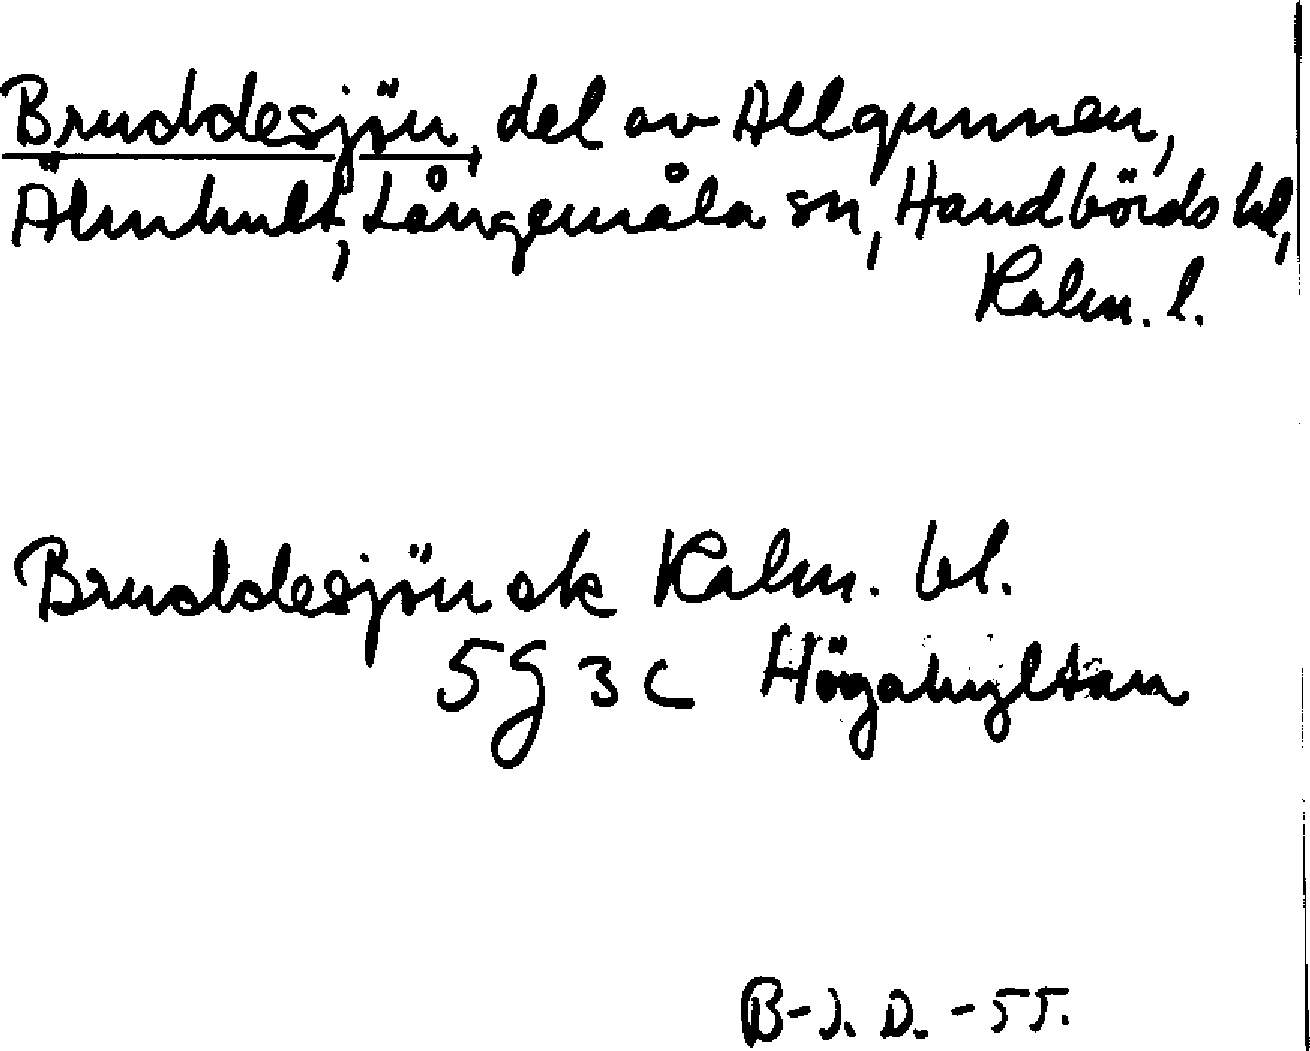 Bruddesjön, del av Allgunnen,
Älmhult, Långemåla sn, Handbörds hd,
Kalm. l.
Bruddesjön ek Kalm. bl.
5G 3c Högahyltan
B-J. D. -55.